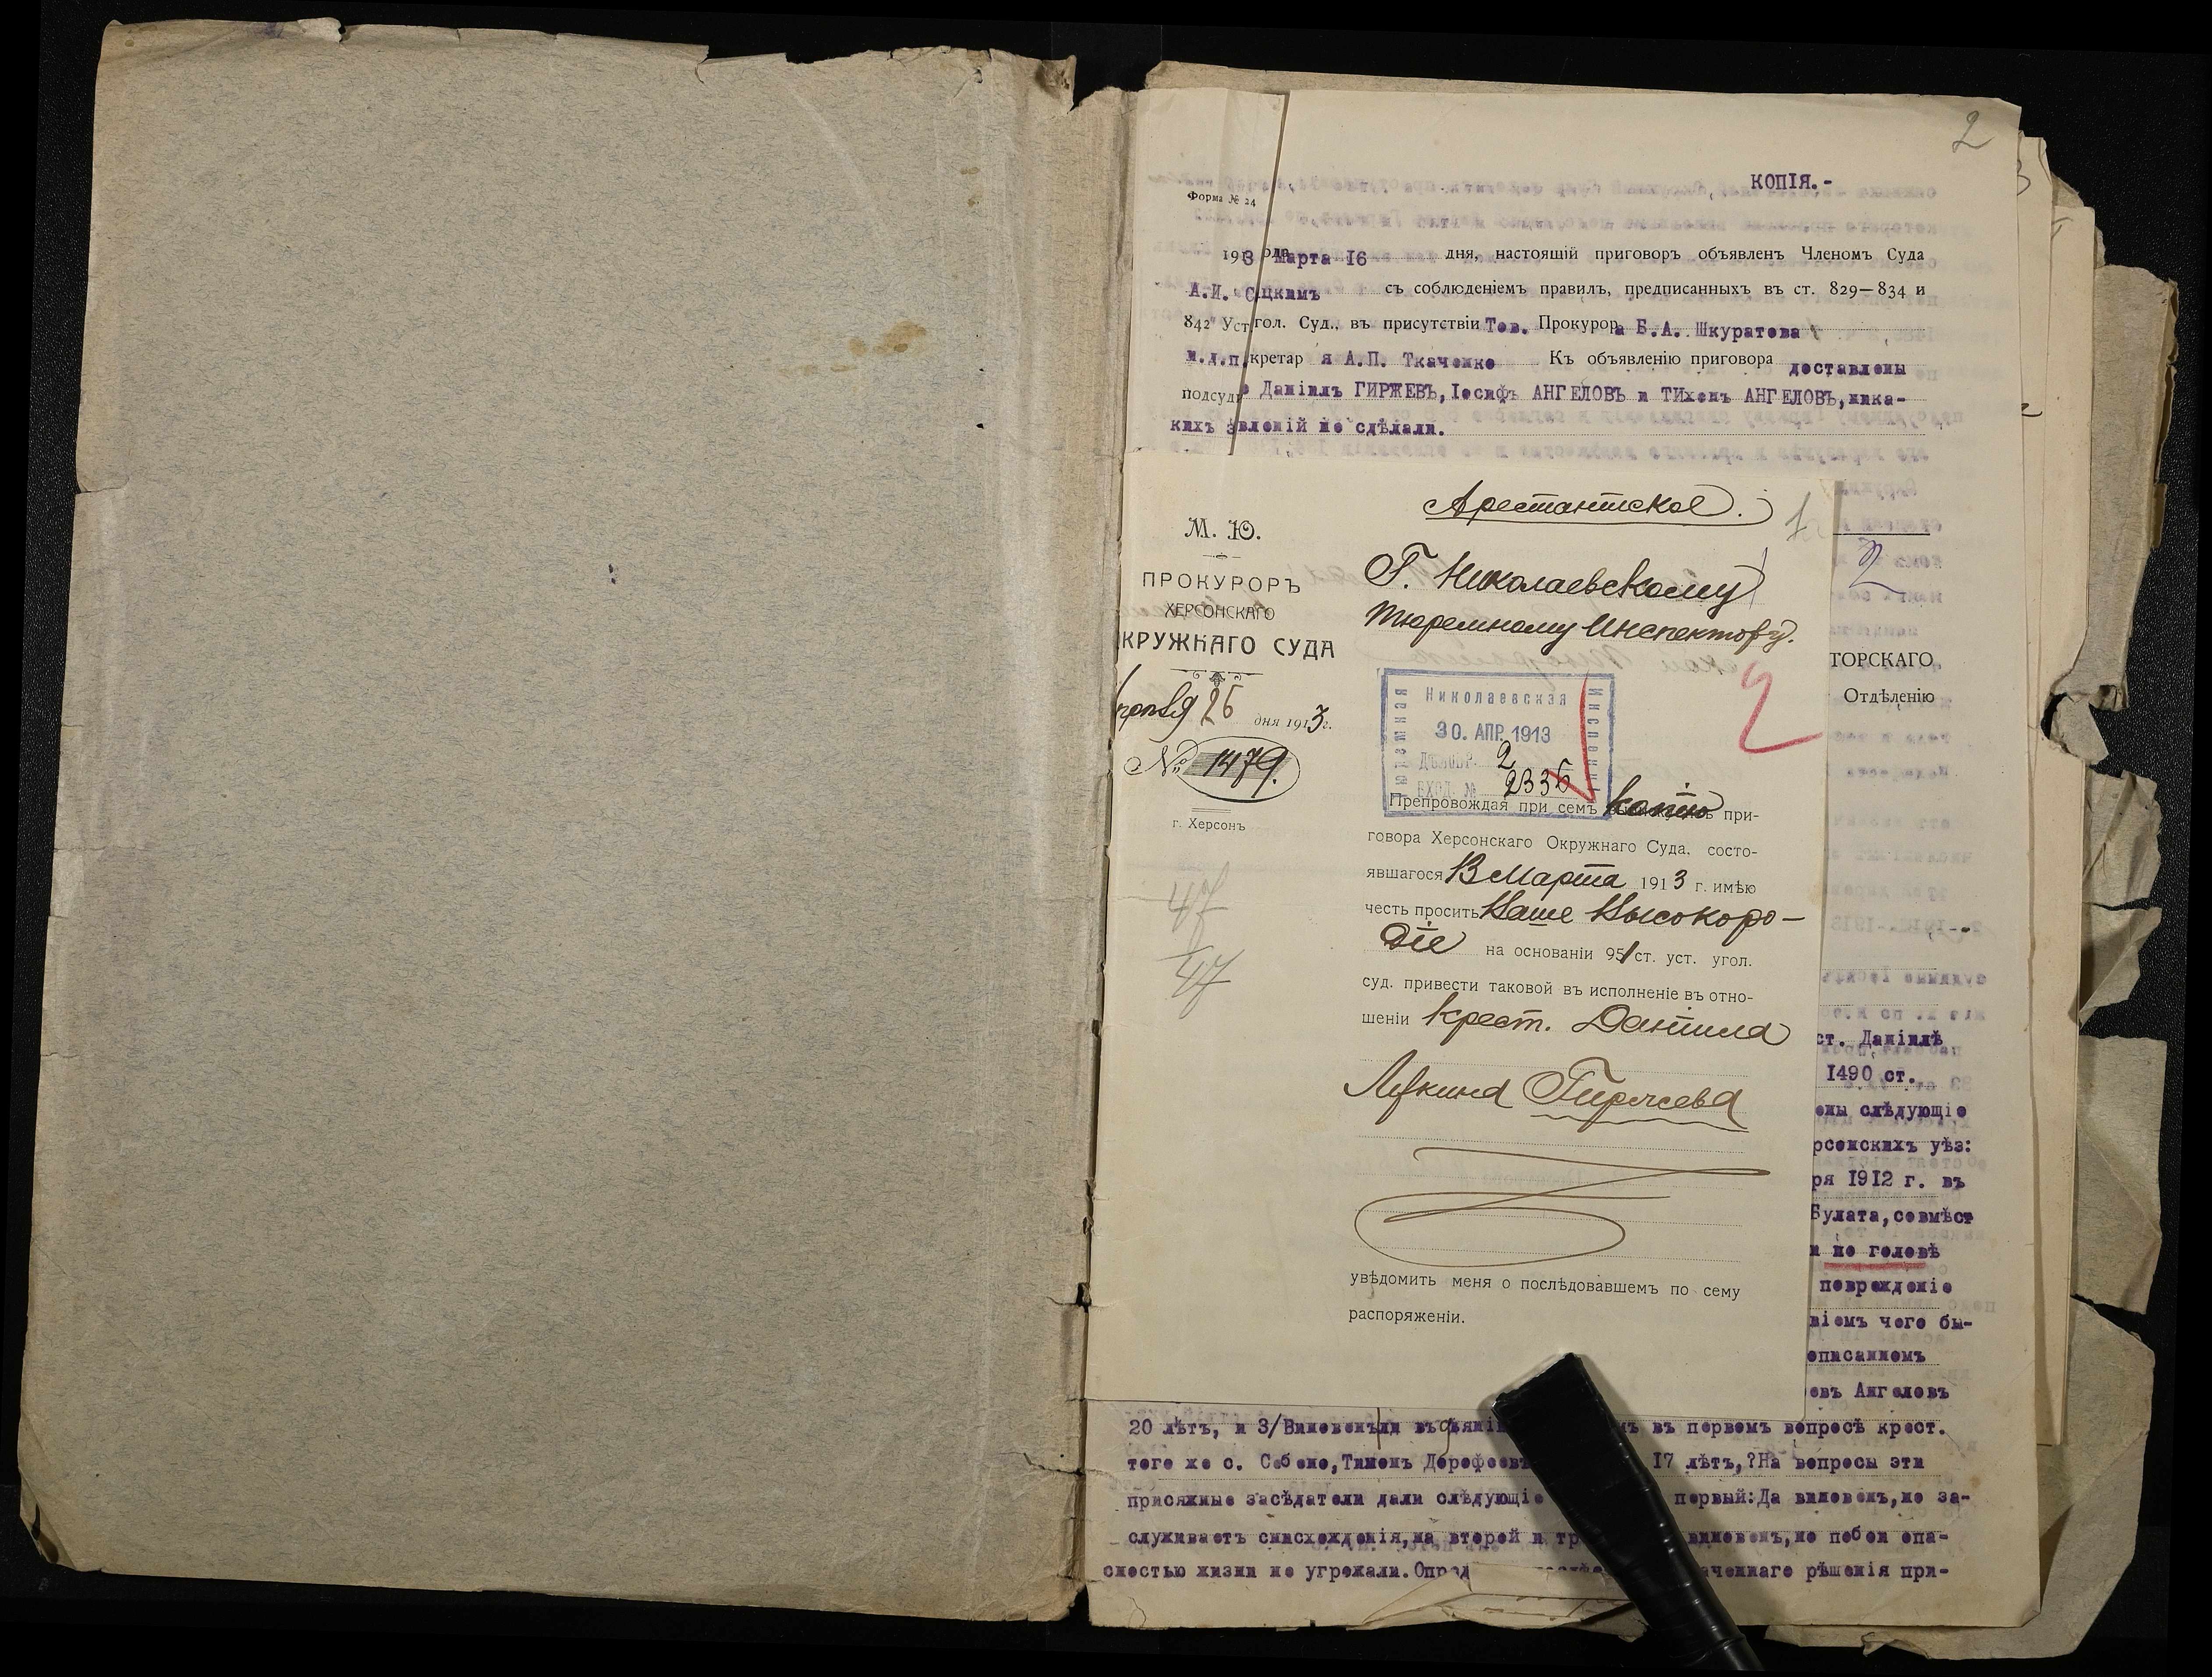 2
КОПІЯ.-
Форма № 24
1913 Марта 16 дня, настоящій приговоръ объявленъ Членомъ Суда
А.И. съ соблюденіемъ правилъ, предписанныхъ въ ст. 829—834 и
842 Уст гол. Суд., въ присутствіи Тов. Прокурора Б.А. Шкуратова
и.д.п. кретар я А.П. Ткаченко Къ объявленію приговора доставлены
подсуди Даніилъ ГИРЖЕВЪ, Іосифъ АНГЕЛОВЪ и ТИхонъ АНГЕЛОВЪ, ника-
кихъ явленій не сдѣлали.
Арестантское.
1
2
М. Ю.
ПРОКУРОРЪ
ХЕРСОНСКАГО
КРУЖНАГО СУДА
26 дня 1913 г.
№ 1479.
г. Херсонъ
47
47
Г. Николаевскому
Тюремному Инспектору.
2
Николаевская
30. АПР. 1913
2
ВХОД. № 2336
Препровождая при семъ копію при-
говора Херсонскаго Окружнаго Суда, состо-
явшагося 13 Марта 1913 г. имѣю
честь просить Ваше Высокоро-
діе на основаніи 951 ст. уст. угол.
суд. привести таковой въ исполненіе въ отно-
шеніи крест. Даніила
Гиржева
увѣдомить меня о послѣдовавшемъ по сему
распоряженіи.
ТОРСКАГО
Отдѣленію
ст. Даніилѣ
1490 ст.
ены слѣдующіе
рсонскихъ уѣз:
ря 1912 г. въ
Булата, совмѣст
и по головѣ
поврежденіе
віемъ чего бы-
описанномъ
овъ Ангеловъ
20 лѣтъ, и 3/Виновенъ въ первомъ вопросѣ крест.
того же с. 17 лѣтъ,?На вопросы эти
присяжные засѣдатели дали слѣдующіе первый:Да виновенъ, не за-
служиваетъ снисхожденія, на второй и тр виновенъ, но побои опа-
сностью жизни не угрожали. Опред аченнаго рѣшенія при-